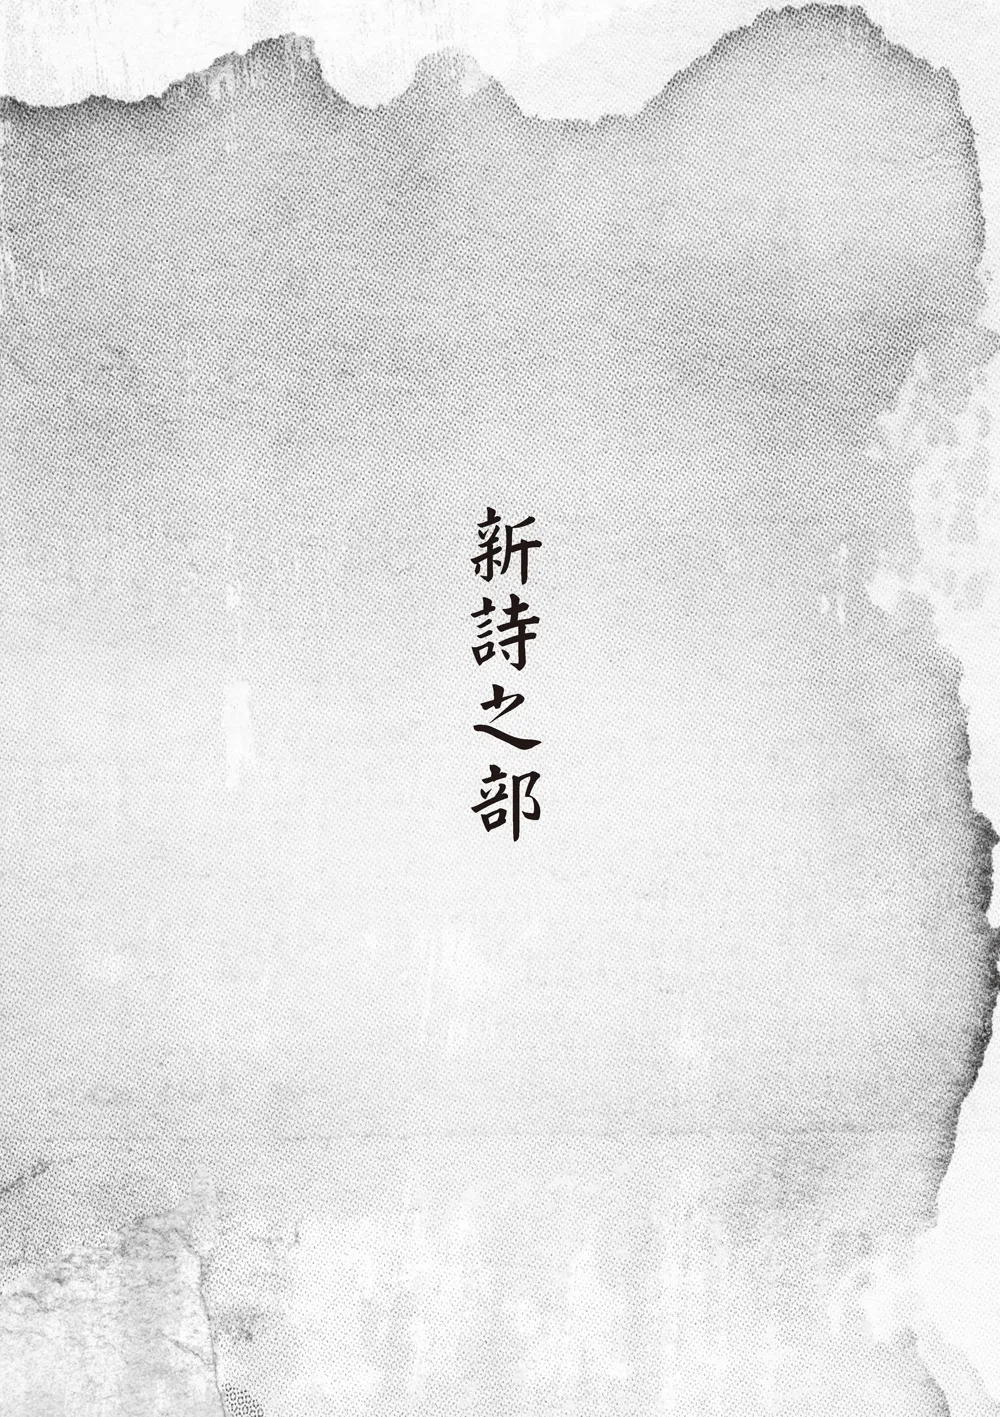 新詩之部